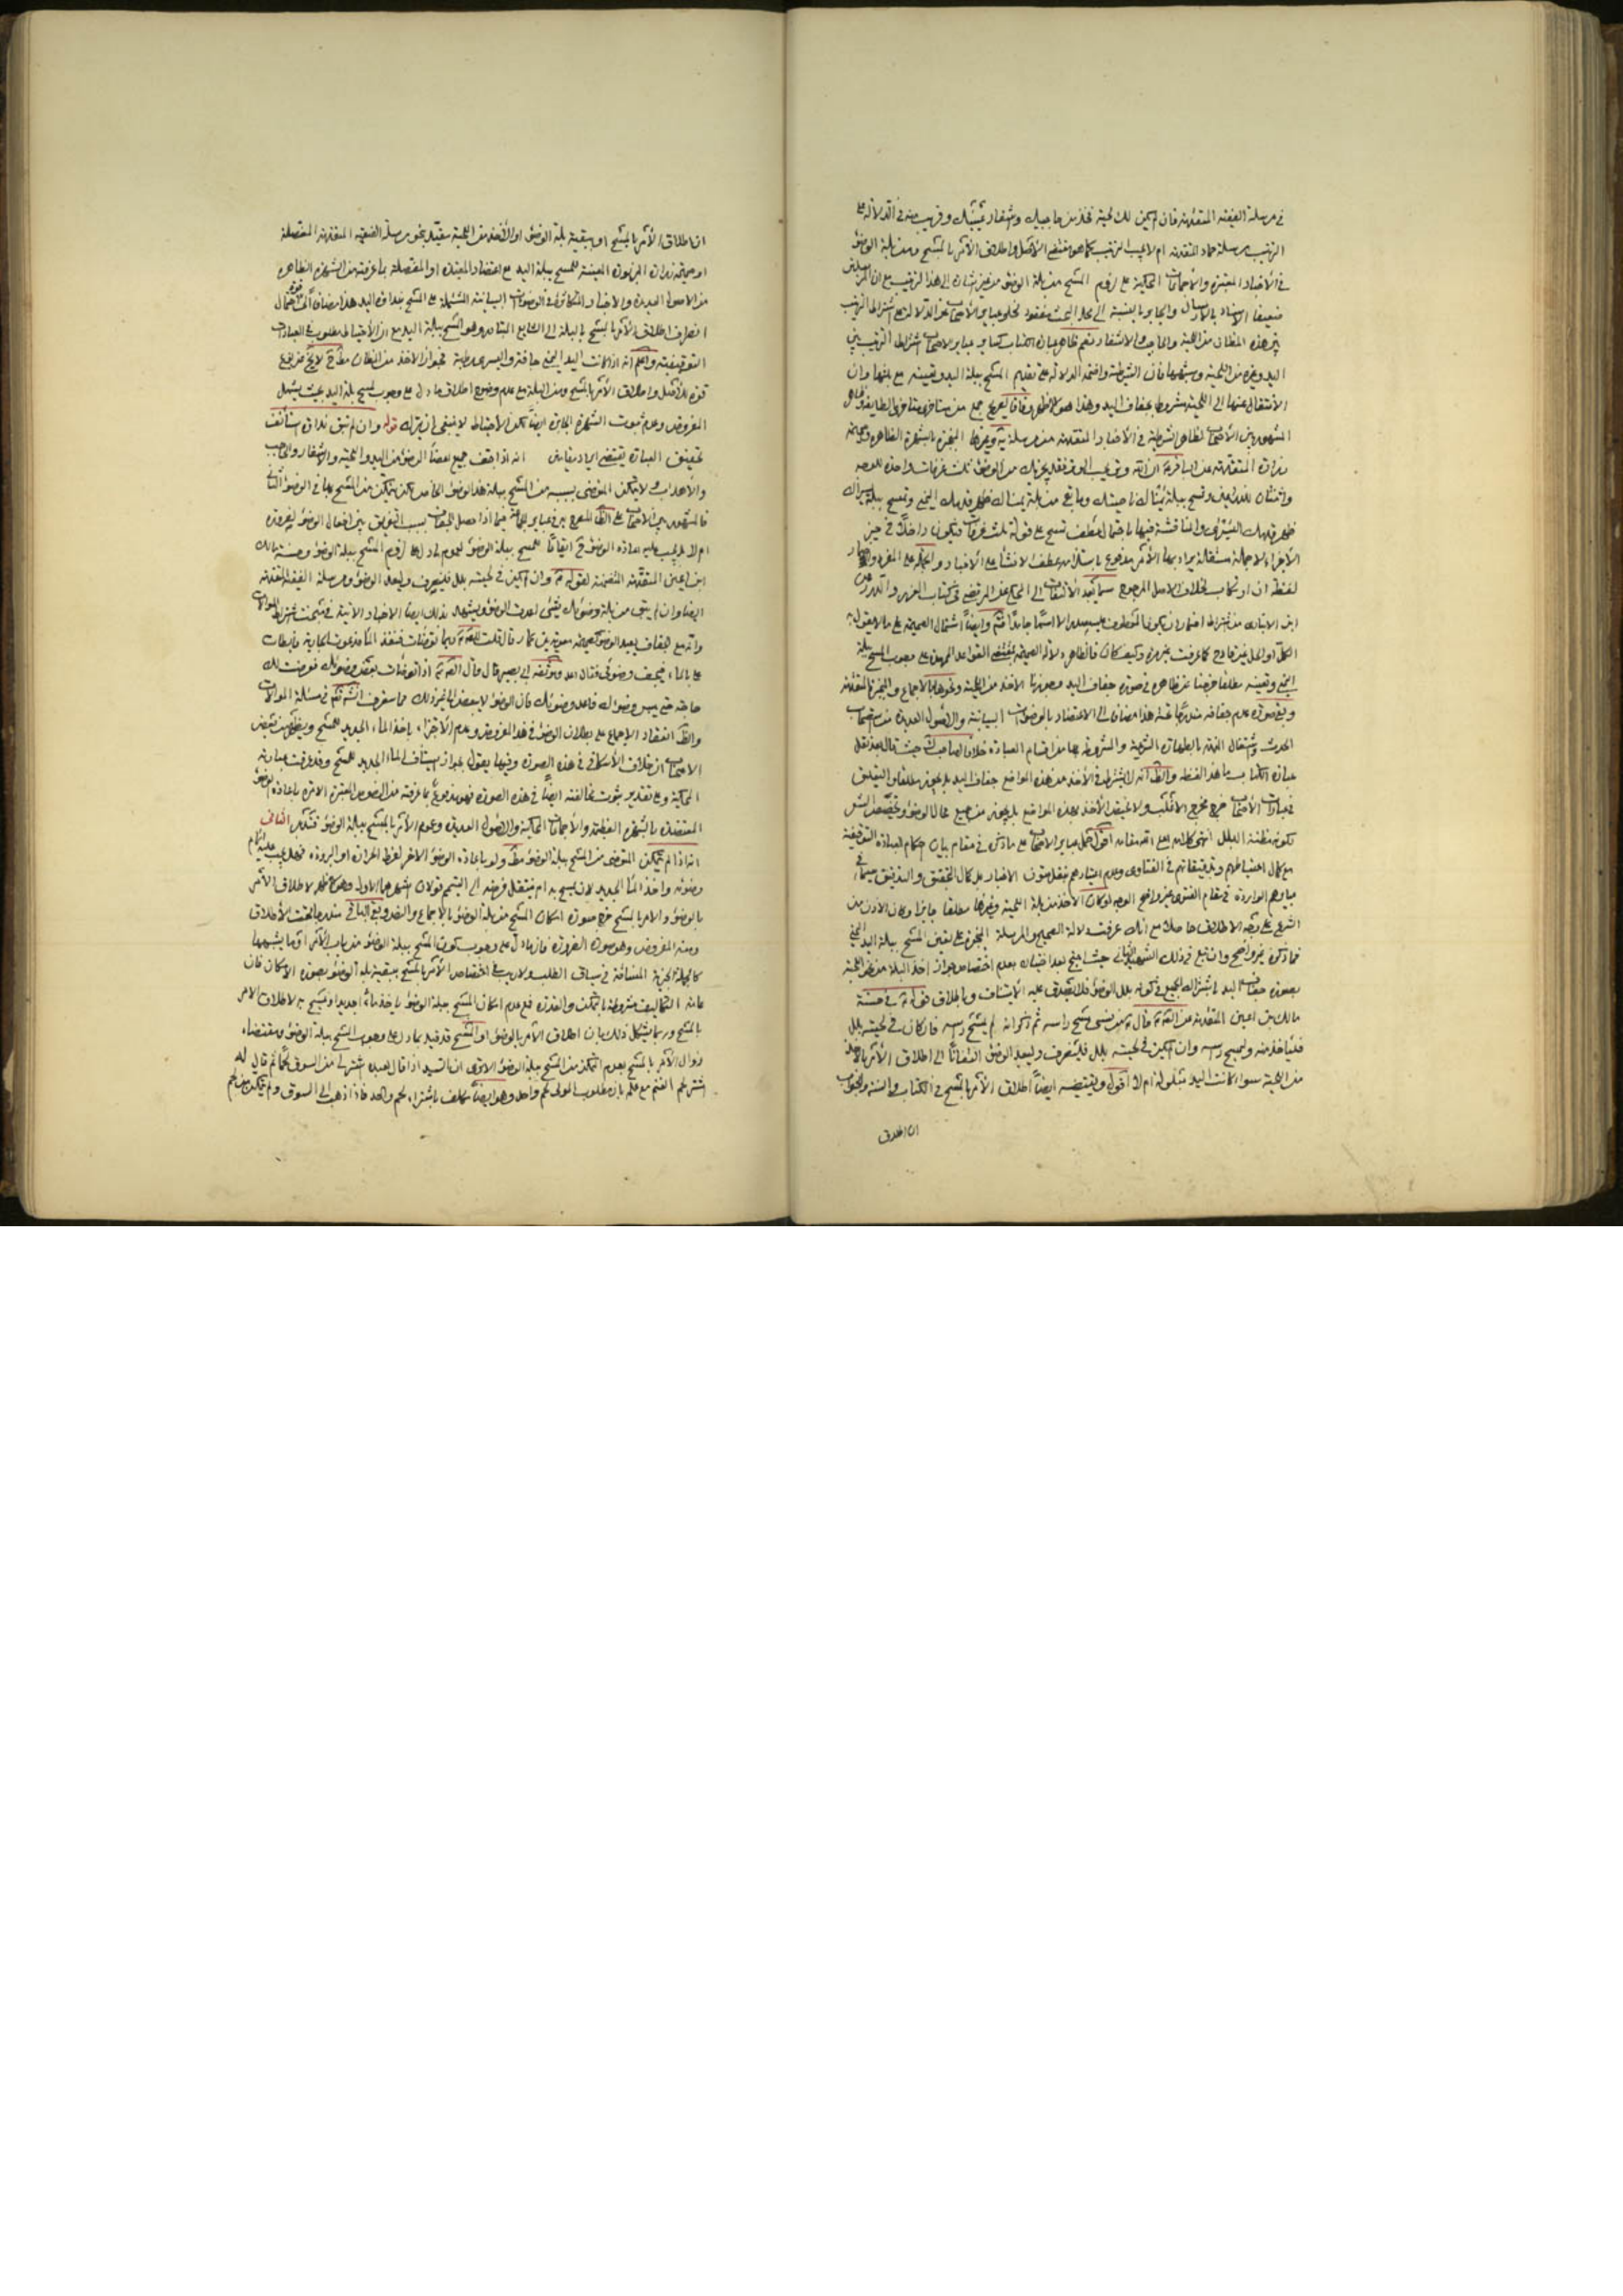 في مرسلة الفقيه المتقدمة فان لم يكن لك لحية فخذ من حاجبيك واشفار عينيك وقريب منه في الدلالة على
الترتيب مرسلة حماد المتقدمة ام لا يجب الترتيب كما هو مقتضى الأصل واطلاق الأمر بالمسح ومن بلة الوضوء
في الأخبار المعتبرة والاجماعات المحكية على لزوم المسح من بلة الوضوء من غير اشارة الى هذا الترتيب مع ان
ضعيفا الاسناد بالارسال والجابر بالنسبة الى محل البحث مفقود لخلو عباير الأصحاب عن الدلالة على اشتراط الترتيب
بين هذه المظان من اللحية والحاجب والاشفار نعم ظاهر عبارة الكتاب كساير عباير الاصحاب اشتراط الترتيب بين
اليد وغيره من اللحية وشبهها فان الشرطية واضحة الدلالة على تقديم المسح ببلة اليد وتعيينه مع بقائها وان
الأنتقال عنها الى اللحية مشروط بجفاف اليد وهذا هو الأظهر وفاقا لصريح جمع من متأخري متأخري الطايفة
المشهور بين الأصحاب لظاهر الشرطية في الأخبار المتقدمة من مرسلة يه وغيرها المنجبرة بالشهرة الظاهرة
زرارة المتقدمة عن الباقر ع ان الله وتر يحب الوتر فقد يجزيك من الوضوء ثلث غرفات واحدة للوجه
واثنتان للذراعين وتمسح ببلة يمناك ناصيتك وما بقي من بلة يمناك ظهر قدمك اليمنى وتمسح ببلة يسراك
ظهر قدمك اليسرى والمناقشة فيها باحتمال عطف تمسح على قوله ثلث غرفات فيكون داخلا في حيز
الأجزاء لا جملة مستقلة يراد بها الأمر مدفوع باستلزامه عطف الانشاء على الأخبار والجملة على المفرد
لفظة ان ارتكاب خلاف الاصل المرجوح
ابن الانباري من اشتراط اضمار ان يكون المعطوف عليه اسما جامدا فتم وايضا اشتمال الصحيحة على ما لا يقول به
الكل او الجل غير قادح كما عرفت غير مرة وكيف كان فالظاهر دلالة الصحيحة بمقتضى القواعد الممهدة على وجوب المسح ببلة
اليمنى وتعينه مطلقا خرجنا عن ظاهره في صورة جفاف اليد وجوزنا الاخذ من اللحية ونحوها بالاجماع والمعتبرة المتقدمة
وبقي صورة عدم جفافه مندرجا تحته هذا مضافا الى الاعتضاد بالوضوءات البيانية والأصول العديدة من استصحاب
الحدث واشتغال الذمة بالطهارة الشرعية والمشروطة بها من اقسام العبادة خلافا لصاحب ك حيث قال بعد نقل
عبارة الكتاب بهذا اللفظ والظ انه لا يشترط في الأخذ من هذه المواضع جفاف اليد بل يجوز مطلقا والتعليق
في عبارات الأصحاب خرج مخرج الأغلب ولا يختص الأخذ بهذه المواضع بل يجوز من جميع محال الوضوء وتخصيص الشعر
لكونه مظنة البلل انتهى كلامه رفع الله مقامه اقول حمل عباير الاصحاب على ما ذكره في مقام بيان احكام العبادة التوقيفية
مع كمال احتياطهم وتدقيقاتهم في الفتاوى وعدم اعتيادهم بنقل متون الاخبار بل كمال التحقيق والتدقيق سيما في
عباراتهم الواردة في مقام الفتوى غير واضح الوجه لو كان الأخذ من بلة اللحية وغيرها مطلقا جايزا وكان الأذن من
الشرع على وجه الاطلاق حاصلا مع انك عرفت دلالة الصحيح والمرسلة المنجبرة على تعين المسح ببلة اليد اليمنى
فما ذكره غير واضح وان تبع في ذلك الشهيد الثاني حيث احتج بعد اختياره بعدم اختصاص جواز اخذ البلة من نحو اللحية
بصورة جفاف اليد باشتراك الجميع في كونه بلل الوضوء فلا يصدق عليه الاستيناف وباطلاق قوله ع في حسنة
مالك بن اعين المتقدمة عن الصادق ع قال ع من نسي مسح راسه ثم ذكر انه لم يمسح رأسه فان كان في لحيته بلل
فلياخذ منه وليمسح رأسه وان لم يكن في لحيته بلل فلينصرف وليعد الوضوء التفاتا الى اطلاق الأمر بالأخذ
من اللحية سواء كانت اليد مبلولة ام لا اقول ويقتضيه ايضا اطلاق الأمر بالمسح في الكتاب والسنة والجواب
ان اطلاق
ان اطلاق الأمر بالمسح او ببقية بلة الوضوء او الأخذ من اللحية مقيد بنحو مرسلة الفقيه المتقدمة المفصلة
او صحيحة زرارة المزبورة المعينة للمسح ببلة اليد مع اعتضاد المعينة او المفصلة بما عرفته من الشهرة الظاهرة
من الاصول العديدة والأخبار المتكاثرة في الوضوءات البيانية المشتملة على المسح بنداوة اليد هذا مضافا الى احتمال
انصراف اطلاق الأمر بالمسح بالبلة الى الشايع المتبادر وهو المسح ببلة اليد مع ان الأحتياط مطلوب في العبادات
التوقيفية واعلم انه اذا كانت اليد اليمنى جافة واليسرى رطبة فجواز الاخذ من المظان مطلقا لا يخ عن
قوة للأصل واطلاق الأمر بالمسح ومن البلة مع عدم وضوح اطلاق ما دل على وجوب المسح ببلة اليد بحيث يشمل
المفروض وعدم ثبوت الشهرة الجابرة ايضا لكن الاحتياط لا ينبغي ان يترك قوله وان لم تبق نداوة استأنف
تحقيق العبارة يقتضي ايراد مقامين انه اذا جف جميع اعضاء الوضوء من اليد واللحية والاشفار والحاجب
والأهداب ولا يتمكن المتوضي بسببه من المسح ببلة هذا الوضوء الخاص لكن يتمكن من المسح بها في الوضوء الثاني
فالمشهور بين الأصحاب على الظ المصرح به في عباير جماعة فيما اذا حصل الجفاف بسبب التفريق بين افعال الوضوء لضرورة
ام لا بل يجب عليه اعادة الوضوء ايقاعا للمسح ببلة الوضوء لعموم ما دل على لزوم المسح ببلة الوضوء وحسنة مالك
ابن اعين المتقدمة المتضمنة لقوله ع وان لم يكن في لحيته بلل فلينصرف وليعد الوضوء ومرسلة الفقيه المتقدمة
ايضا وان لم يبق من بلة وضوئك شيء اعدت الوضوء ويشهد بذلك ايضا الاخبار الاتية في مبحث اشتراط الموالات
وانه مع الجفاف يعيد الوضوء كصحيحة معوية بن عمار قال قلت للصادق ع ربما توضأت فنفد الماء فدعوت الجارية فأبطأت
علي بالماء فيجف وضوئي فقال اعد وموثقة ابي بصير قال قال الصادق ع اذا توضأت بعض وضوئك فعرضت لك
حاجة حتى يبس وضوءك فاعد وضوئك فان الوضوء لا يبعض الى غير ذلك مما ستعرف انشاء الله تعالى في مسئلة الموالات
والظ انعقاد الاجماع على بطلان الوضوء في هذا المفروض وعدم الأجزاء باخذ الماء الجديد للمسح ويظهر من بعض
الاصحاب ان خلاف الأسكافي في هذه الصورة وفيها يقول بجواز استيناف الماء الجديد للمسح وقد عرفت عبارته
المحكية وعلى تقدير ثبوت مخالفته ايضا في هذه الصورة فهو مدفوع بما عرفته من النصوص المعتبرة الامرة باعادة الوضوء
المعتضدة بالشهرة العظيمة والأجماعات المحكية والأصول العديدة وعموم الأمر بالمسح ببلة الوضوء فتدبر الثاني
انه اذا لم يتمكن المتوضي من المسح ببلة الوضوء مط ولو باعادة الوضوء الاخر لفرط الحرارة او البرودة فهل يجب عليه اتمام
وضوئه واخذ الماء الجديد لان يمسح به ام ينتقل فرضه الى التيمم قولان اشهرهما الاول وهو الاظهر لاطلاق الأمر
بالوضوء والامر بالمسح خرج صورة امكان المسح من بلة الوضوء بالاجماع والنصوص وبقي الباقي مندرجا تحت الأطلاق
ومنه المفروض وهو صورة الضرورة فان ما دل على وجوب كون المسح ببلة الوضوء من باب الأمر او ما يشبهها
كالجملة الخبرية المساقة في سياق الطلب ولا ريب في اختصاص الأمر بالمسح ببقية بلة الوضوء بصورة الامكان فان
عامة التكاليف مشروطة بالتمكن والقدرة فمع عدم امكان المسح ببلة الوضوء ياخذ ماء جديدا ويمسح به لاطلاق الامر
بالمسح وربما يشكل ذلك بان اطلاق الأمر بالوضوء او المسح قد قيد بما دل على وجوب المسح ببلة الوضوء ومقتضاه
زوال الأمر بالمسح بعدم التمكن من المسح ببلة الوضوء الا ترى ان السيد اذا قال لعبده اشتر لي من السوق لحما ثم قال له
اشتر لحم الغنم مع علمه بان مطلوب المولى لحم واحد وهو ايضا مكلف باشتراء لحم واحد فاذا ذهب الى السوق ولم يتمكن من لحم